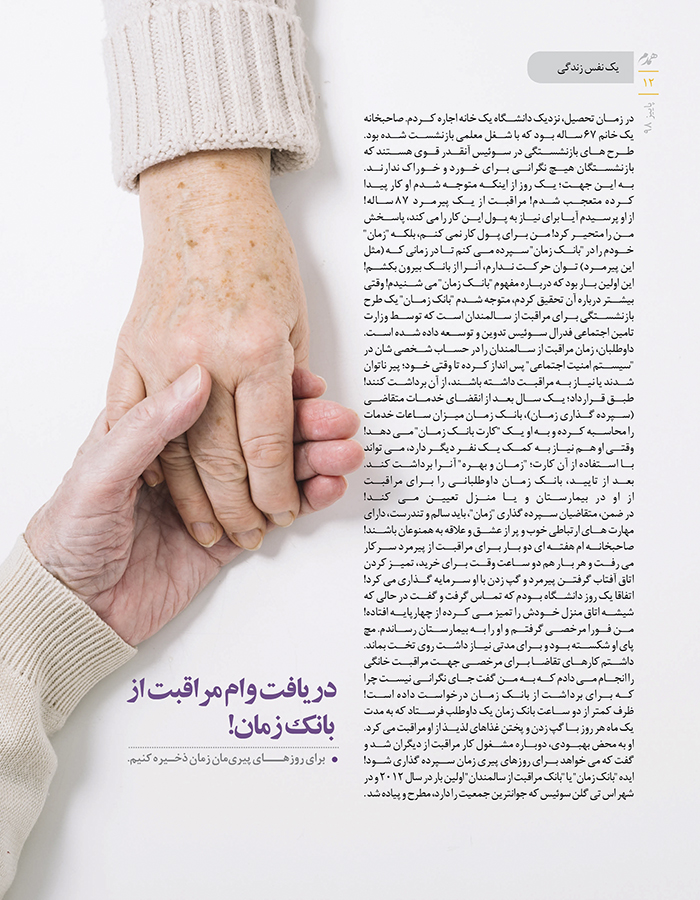 همدم
۱۲
پاییز ۹۸
یک نفس زندگی
در زمان تحصیل، نزدیک دانشگاه یک خانه اجاره کردم. صاحبخانه
یک خانم ۶۷ ساله بود که با شغل معلمی بازنشست شده بود.
طرح های بازنشستگی در سوئیس آنقدر قوی هستند که
بازنشستگان هیچ نگرانی برای خورد و خوراک ندارند.
به این جهت؛ یک روز از اینکه متوجه شدم او کار پیدا
کرده متعجب شدم! مراقبت از یک پیرمرد ۸۷ ساله!
از او پرسیدم آیا برای نیاز به پول این کار را می کند، پاسخش
من را متحیر کرد! من برای پول کار نمی کنم، بلکه "زمان"
خودم را در "بانک زمان" سپرده می کنم تا در زمانی که (مثل
این پیرمرد) توان حرکت ندارم، آنرا از بانک بیرون بکشم!
این اولین بار بود که درباره مفهوم "بانک زمان" می شنیدم! وقتی
بیشتر درباره آن تحقیق کردم، متوجه شدم "بانک زمان" یک طرح
بازنشستگی برای مراقبت از سالمندان است که توسط وزارت
تامین اجتماعی فدرال سوئیس تدوین و توسعه داده شده است.
داوطلبان، زمان مراقبت از سالمندان را در حساب شخصی شان در
"سیستم امنیت اجتماعی" پس انداز کرده تا وقتی خود؛ پیر ناتوان
شدند یا نیاز به مراقبت داشته باشند، از آن برداشت کنند!
طبق قرارداد؛ یک سال بعد از انقضای خدمات متقاضی
(سپرده گذاری زمان)، بانک زمان میزان ساعات خدمات
را محاسبه کرده و به او یک "کارت بانک زمان" می دهد!
وقتی او هم نیاز به کمک یک نفر دیگر دارد، می تواند
با استفاده از آن کارت؛ "زمان و بهره" آنرا برداشت کند.
بعد از تایید، بانک زمان داوطلبانی را برای مراقبت
از او در بیمارستان و یا منزل تعیین می کند!
در ضمن، متقاضیان سپرده گذاری "زمان"، باید سالم و تندرست، دارای
مهارت های ارتباطی خوب و پر از عشق و علاقه به همنوعان باشند!
صاحبخانه ام هفته ای دو بار برای مراقبت از پیرمرد سر کار
می رفت و هر بار هم دو ساعت وقت برای خرید، تمیز کردن
اتاق آفتاب گرفتن پیرمرد و گپ زدن با او سرمایه گذاری می کرد!
اتفاقا یک روز دانشگاه بودم که تماس گرفت و گفت در حالی که
شیشه اتاق منزل خودش را تمیز می کرده از چهارپایه افتاده!
من فورا مرخصی گرفتم و او را به بیمارستان رساندم. مچ
پای او شکسته بود و برای مدتی نیاز داشت روی تخت بماند.
داشتم کارهای تقاضا برای مرخصی جهت مراقبت خانگی
را انجام می دادم که به من گفت جای نگرانی نیست چرا
که برای برداشت از بانک زمان درخواست داده است!
ظرف کمتر از دو ساعت بانک زمان یک داوطلب فرستاد که به مدت
یک ماه هر روز با گپ زدن و پختن غذاهای لذیذ از او مراقبت می کرد.
او به محض بهبودی، دوباره مشغول کار مراقبت از دیگران شد و
گفت که می خواهد برای روزهای پیری زمان سپرده گذاری شود!
ایده "بانک زمان" یا "بانک مراقبت از سالمندان" اولین بار در سال ۲۰۱۲ و در
شهر اس تی گلن سوئیس که جوانترین جمعیت را دارد، مطرح و پیاده شد.
دریافت وام مراقبت از
بانک زمان!
برای روزهای پیری‌مان زمان ذخیره کنیم.